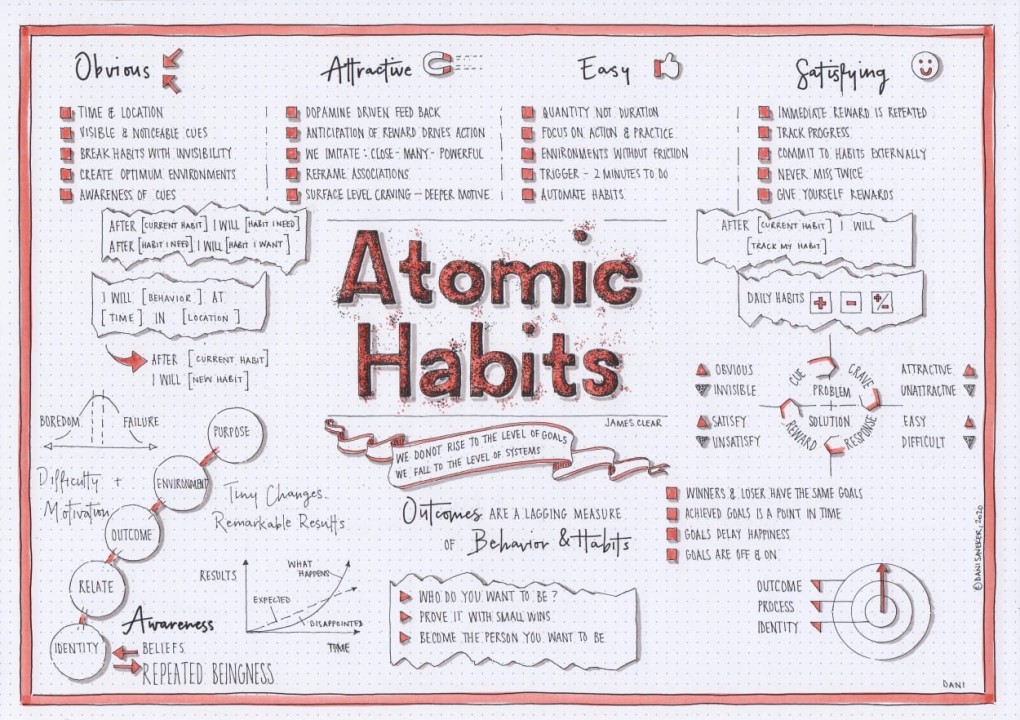 Obvious
TIME & LOCATION
VISIBLE & NOTICEABLE CUES
BREAK HABITS WITH INVISIBILITY
CREATE OPTIMUM ENVIRONMENTS
AWARENESS OF CUES
Attractive
DOPAMINE DRIVEN FEED BACK
ANTICIPATION OF REWARD DRIVES ACTION
WE IMITATE : CLOSE - MANY - POWERFUL
REFRAME ASSOCIATIONS
SURFACE LEVEL CRAVING - DEEPER MOTIVE
Easy
QUANTITY NOT DURATION
FOCUS ON ACTION & PRACTICE
ENVIRONMENTS WITHOUT FRICTION
TRIGGER - 2 MINUTES TO DO
AUTOMATE HABITS
Satisfying
IMMEDIATE REWARD IS REPEATED
TRACK PROGRESS
COMMIT TO HABITS EXTERNALLY
NEVER MISS TWICE
GIVE YOURSELF REWARDS
AFTER [CURRENT HABIT] I WILL [HABIT I NEED]
AFTER [HABIT I NEED] I WILL [HABIT I WANT]
I WILL [BEHAVIOR] AT
[TIME] IN [LOCATION]
AFTER [CURRENT HABIT]
I WILL [NEW HABIT]
Atomic
Habits
JAMES CLEAR
WE DO NOT RISE TO THE LEVEL OF GOALS
WE FALL TO THE LEVEL OF SYSTEMS
AFTER [CURRENT HABIT] I WILL
[TRACK MY HABIT]
DAILY HABITS + - +/-
OBVIOUS
INVISIBLE
SATISFY
UNSATISFY
CUE
CRAVE
PROBLEM
SOLUTION
REWARD
RESPONSE
ATTRACTIVE
UNATTRACTIVE
EASY
DIFFICULT
BOREDOM
FAILURE
Difficulty +
Motivation
PURPOSE
ENVIRONMENT
OUTCOME
RELATE
IDENTITY
Tiny Changes.
Remarkable Results
Awareness
BELIEFS
REPEATED BEINGNESS
RESULTS
WHAT
HAPPENS
EXPECTED
DISAPPOINTED
TIME
Outcomes ARE A LAGGING MEASURE
OF Behavior & Habits
WHO DO YOU WANT TO BE ?
PROVE IT WITH SMALL WINS
BECOME THE PERSON YOU WANT TO BE
WINNERS & LOSER HAVE THE SAME GOALS
ACHIEVED GOALS IS A POINT IN TIME
GOALS DELAY HAPPINESS
GOALS ARE OFF & ON
OUTCOME
PROCESS
IDENTITY
DANI